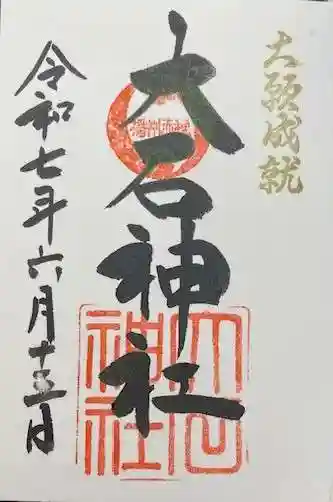 大願成就
大石神社
播州赤穂
大石神社
令和七年六月十三日